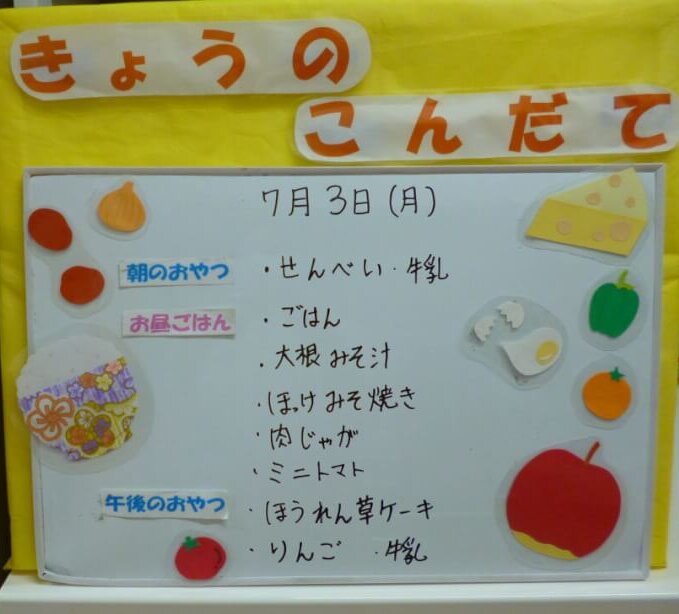 きょうの
こんだて
7月3日(月)
朝のおやつ ・せんべい・牛乳
お昼ごはん ・ごはん
・大根みそ汁
・ほっけみそ焼き
・肉じゃが
・ミニトマト
午後のおやつ ・ほうれん草ケーキ
・りんご ・牛乳